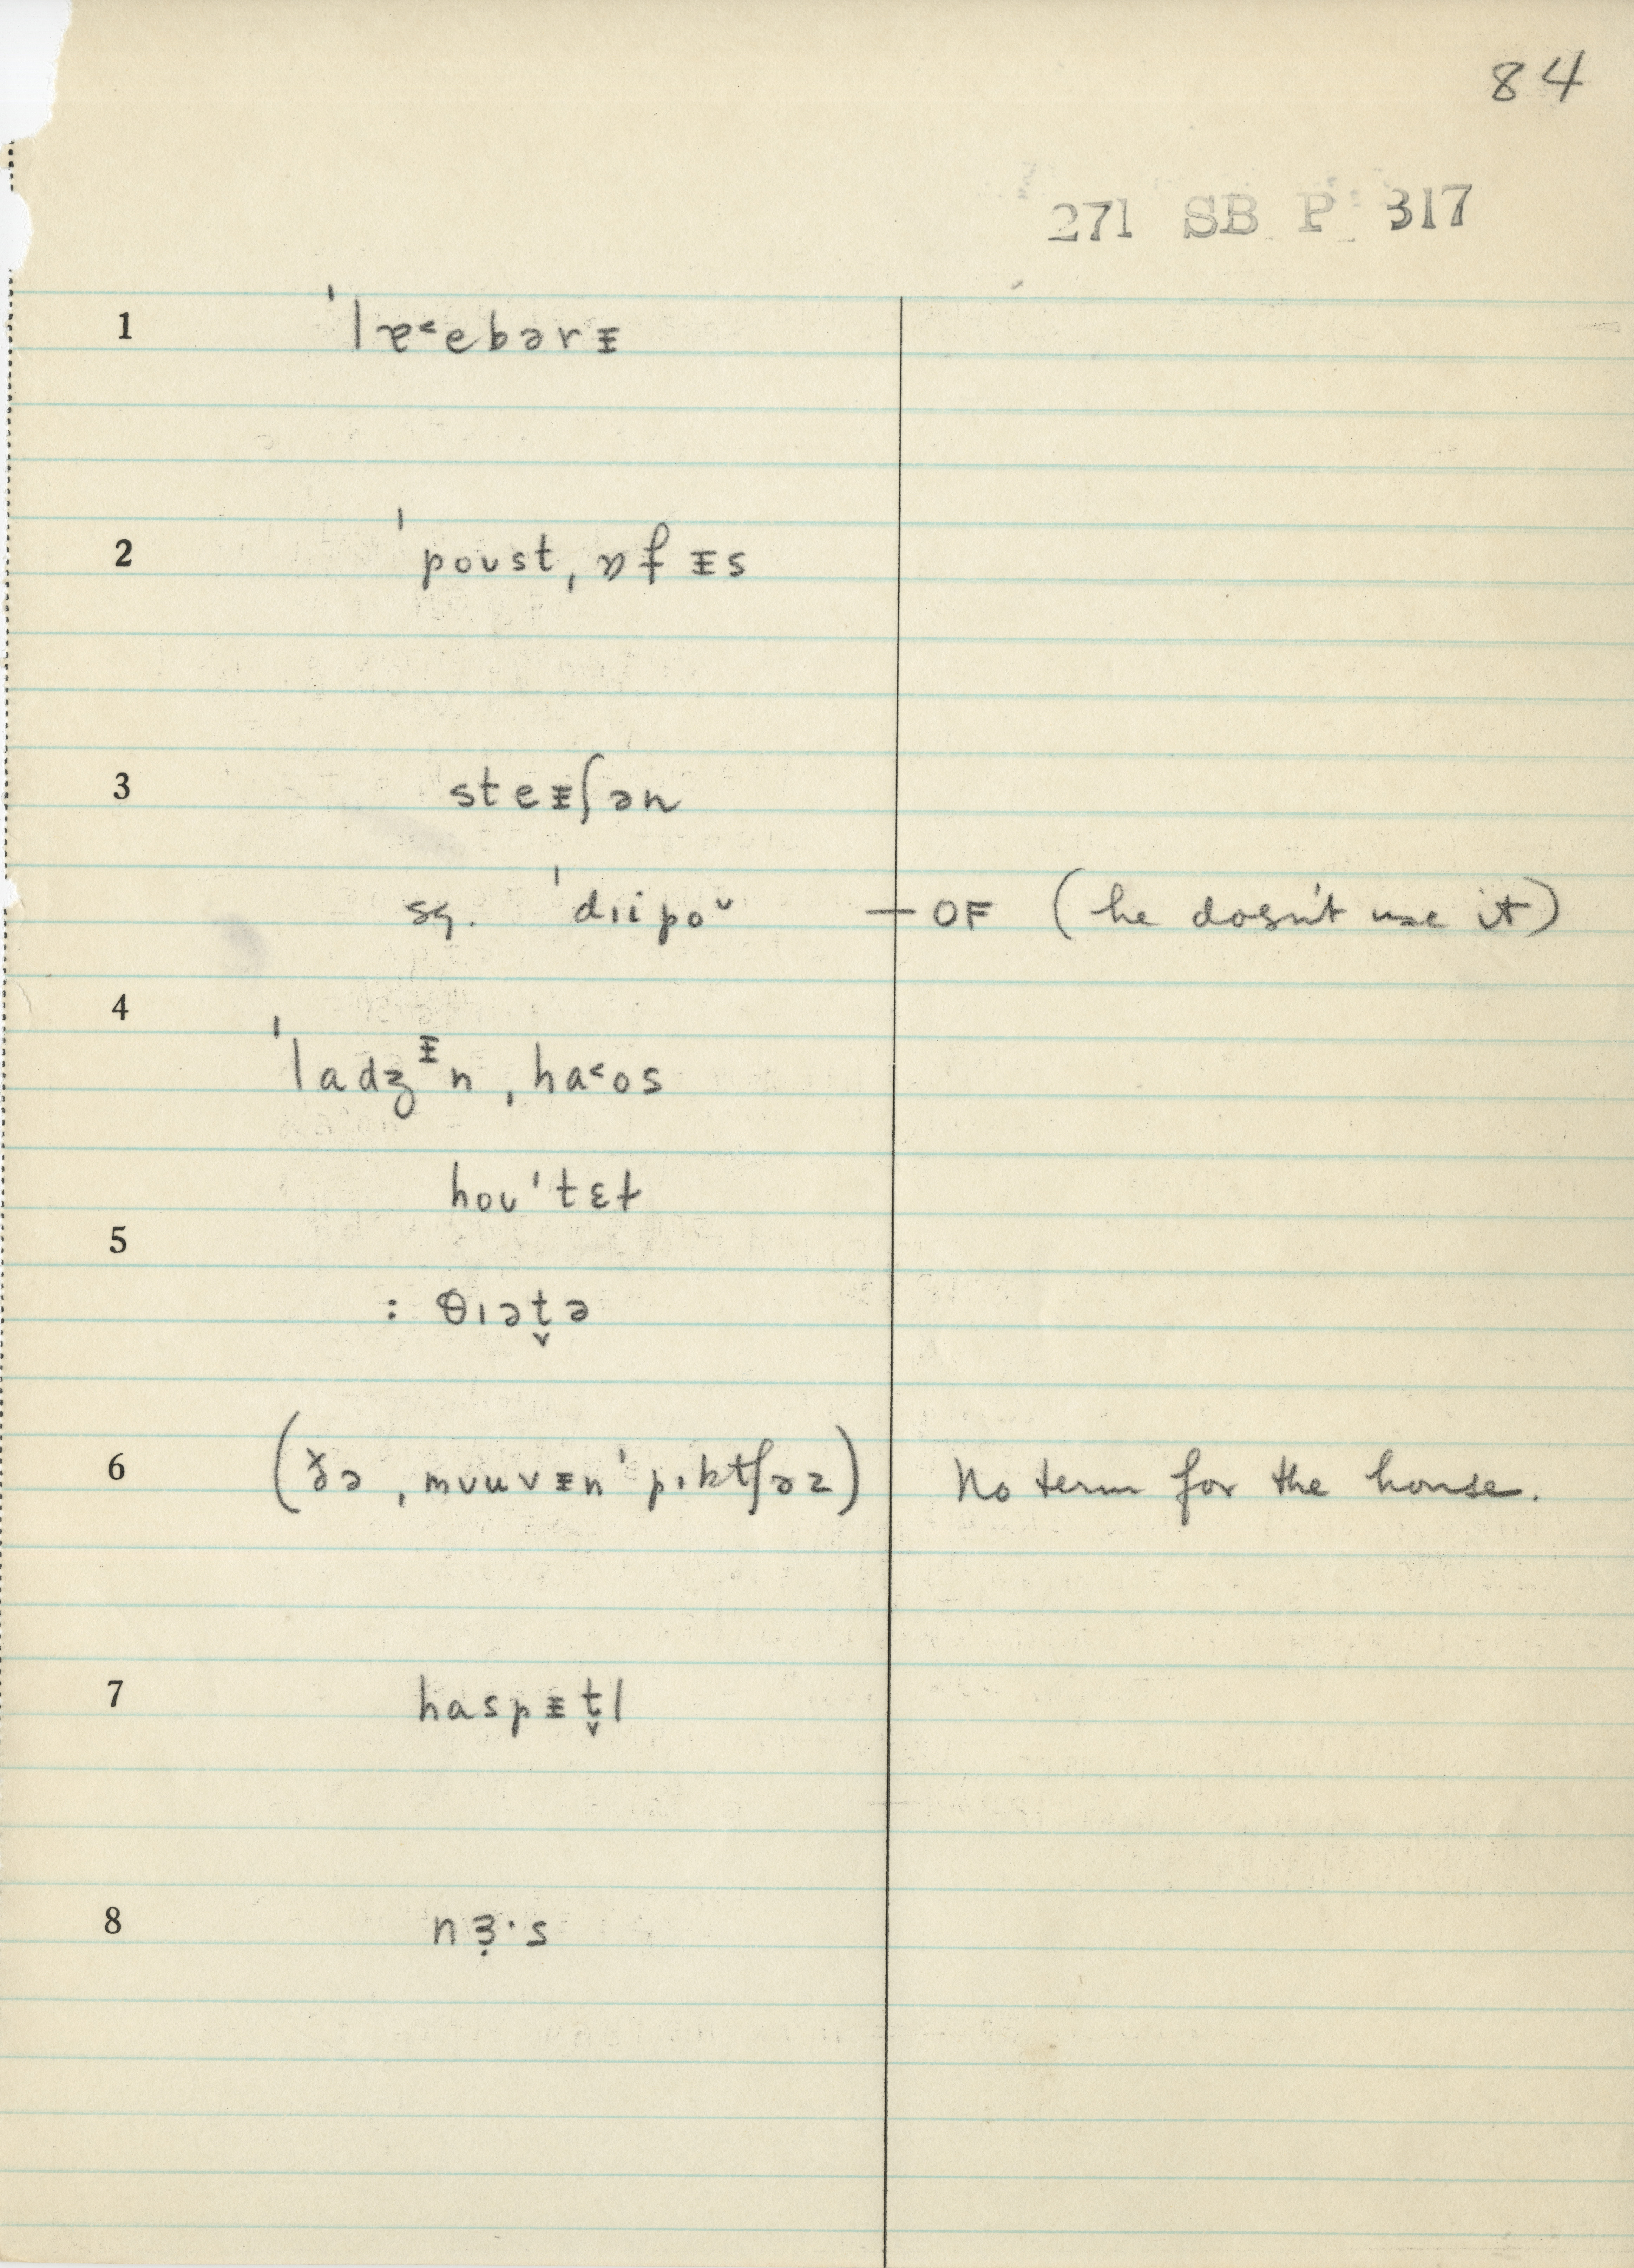 84
271 SB P 317
1 ˈlɐ˂ebərᵻ
2 ˈpoʊst ˌɒfᵻs
3 steᵻʃən
sg. ˈdɪipoᴗ — OF (he doesn't use it)
4
ˈladʒᵻn ˌha˂os
hoʊˈtɛɫ
5
: θɪət̬ə
6 (ðə ˌmʊuvᵻnˈpɪktʃəz) No term for the house.
7 haspᵻt̬l
8 nɜ̣·s